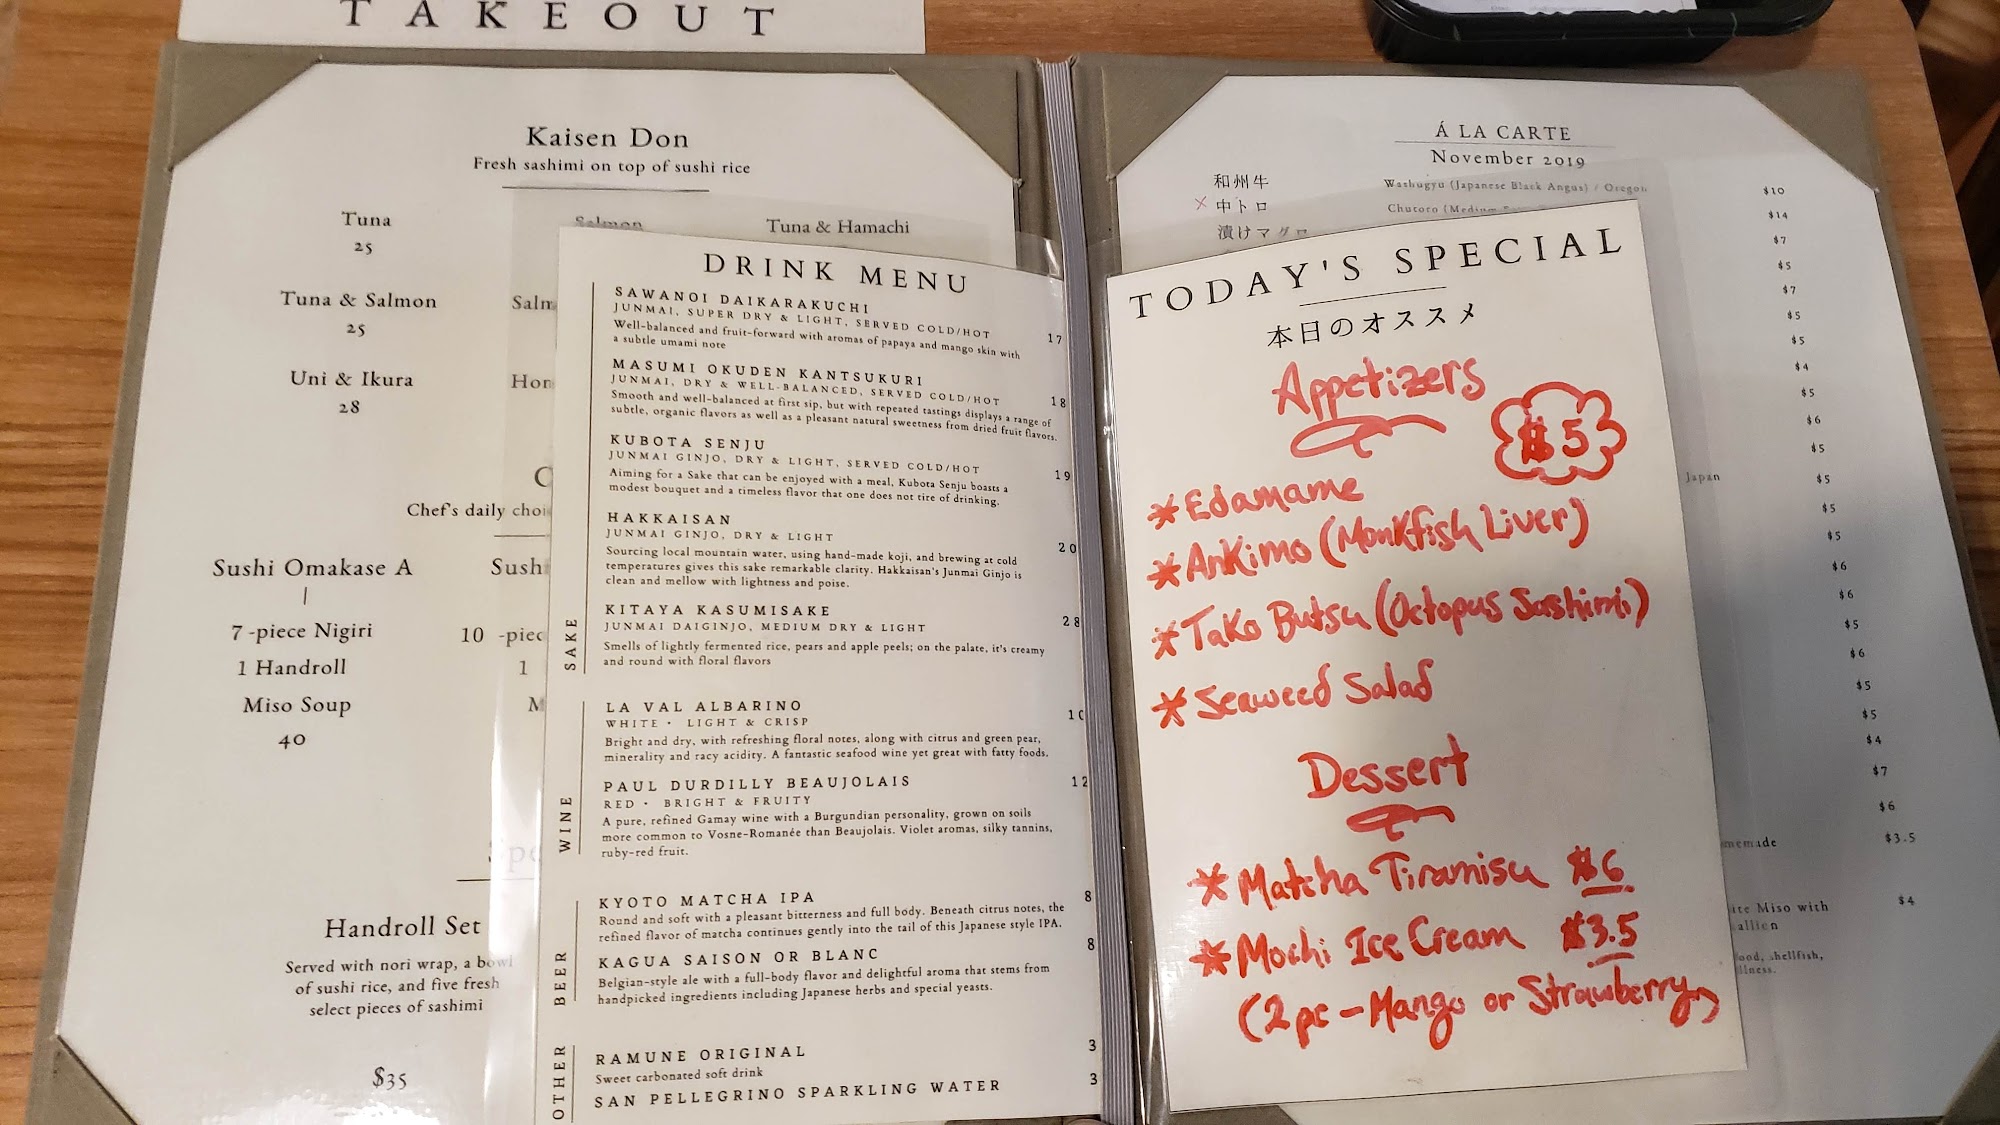 TAKEOUT
Kaisen Don
Fresh sashimi on top of sushi rice
Tuna
25
Salmon
Tuna & Hamachi
Tuna & Salmon
25
Uni & Ikura
28
Chef's daily
Sushi Omakase A
7 -piece Nigiri
1 Handroll
Miso Soup
40
10
1
Handroll Set
Served with nori wrap, a bowl
of sushi rice, and five fresh
select pieces of sashimi
$35
DRINK MENU
SAKE
SAWANOI DAIKARAKUCHI
JUNMAI, SUPER DRY & LIGHT, SERVED COLD/HOT 17
Well-balanced and fruit-forward with aromas of papaya and mango skin with
a subtle umami note
MASUMI OKUDEN KANTSUKURI
JUNMAI, DRY & WELL-BALANCED, SERVED COLD/HOT 18
Smooth and well-balanced at first sip, but with repeated tastings displays a range of
subtle, organic flavors as well as a pleasant natural sweetness from dried fruit flavors.
KUBOTA SENJU
JUNMAI GINJO, DRY & LIGHT, SERVED COLD/HOT 19
Aiming for a Sake that can be enjoyed with a meal, Kubota Senju boasts a
modest bouquet and a timeless flavor that one does not tire of drinking.
HAKKAISAN
JUNMAI GINJO, DRY & LIGHT 20
Sourcing local mountain water, using hand-made koji, and brewing at cold
temperatures gives this sake remarkable clarity. Hakkaisan's Junmai Ginjo is
clean and mellow with lightness and poise.
KITAYA KASUMISAKE
JUNMAI DAIGINJO, MEDIUM DRY & LIGHT 28
Smells of lightly fermented rice, pears and apple peels; on the palate, it's creamy
and round with floral flavors
WINE
LA VAL ALBARINO 10
WHITE · LIGHT & CRISP
Bright and dry, with refreshing floral notes, along with citrus and green pear,
minerality and racy acidity. A fantastic seafood wine yet great with fatty foods.
PAUL DURDILLY BEAUJOLAIS 12
RED · BRIGHT & FRUITY
A pure, refined Gamay wine with a Burgundian personality, grown on soils
more common to Vosne-Romanée than Beaujolais. Violet aromas, silky tannins,
ruby-red fruit.
BEER
KYOTO MATCHA IPA 8
Round and soft with a pleasant bitterness and full body. Beneath citrus notes, the
refined flavor of matcha continues gently into the tail of this Japanese style IPA.
KAGUA SAISON OR BLANC 8
Belgian-style ale with a full-body flavor and delightful aroma that stems from
handpicked ingredients including Japanese herbs and special yeasts.
OTHER
RAMUNE ORIGINAL 3
Sweet carbonated soft drink
SAN PELLEGRINO SPARKLING WATER 3
Á LA CARTE
November 2019
和州牛 Washugyu (Japanese Black Angus) / Oregon $10
× 中トロ Chutoro $14
漬けマグロ $7
$5
$7
$5
$5
$4
$5
$6
$5
Japan $5
$5
$5
$6
$6
$5
$6
$5
$5
$4
$7
$6
$3.5
Miso with $4
TODAY'S SPECIAL
本日のオススメ
Appetizers
$5
* Edamame
* Ankimo (Monkfish Liver)
* Tako Butsu (Octopus Sashimi)
* Seaweed Salad
Dessert
* Matcha Tiramisu $6
* Mochi Ice Cream $3.5
(2pc - Mango or Strawberry)